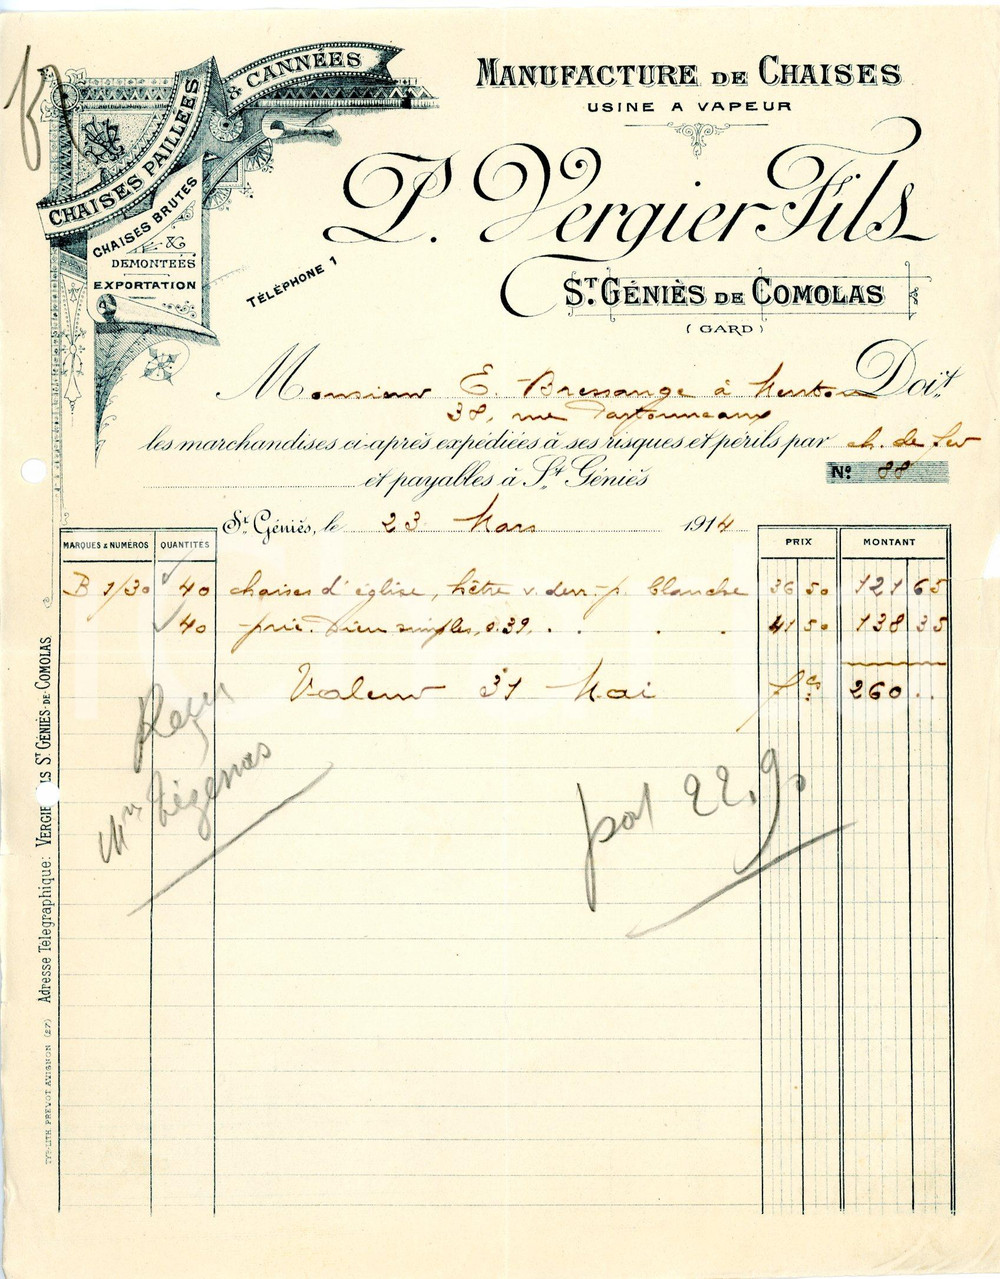 CHAISES PAILLÉES & CANNÉES
CHAISES BRUTES
&
DEMONTEÉS
EXPORTATION
TÉLÉPHONE 1
MANUFACTURE DE CHAISES
USINE A VAPEUR
P. Vergier Fils
ST. GÉNIÈS DE COMOLAS
(GARD)
Monsieur E. Bressange à Menton Doit
38, rue
les marchandises ci-après expédiées à ses risques et périls par ch. de fer
et payables à St. Géniès
No. 88
St. Géniès, le 23 Mars 1914
MARQUES & NUMÉROS QUANTITÉS PRIX MONTANT
B 1/30 40 chaises d'église, hêtre v. derr. p. blanche 36 50 121 65
40 prie-Dieu simples, 0.39, . . . . 41 50 138 35
Valeur 31 Mai fcs 260 . .
Reçu
Mr
port 22.90
Adresse Télégraphique: VERGIER FILS ST. GÉNIÈS-DE-COMOLAS
TYP-LITH PREVOT AVIGNON (27)